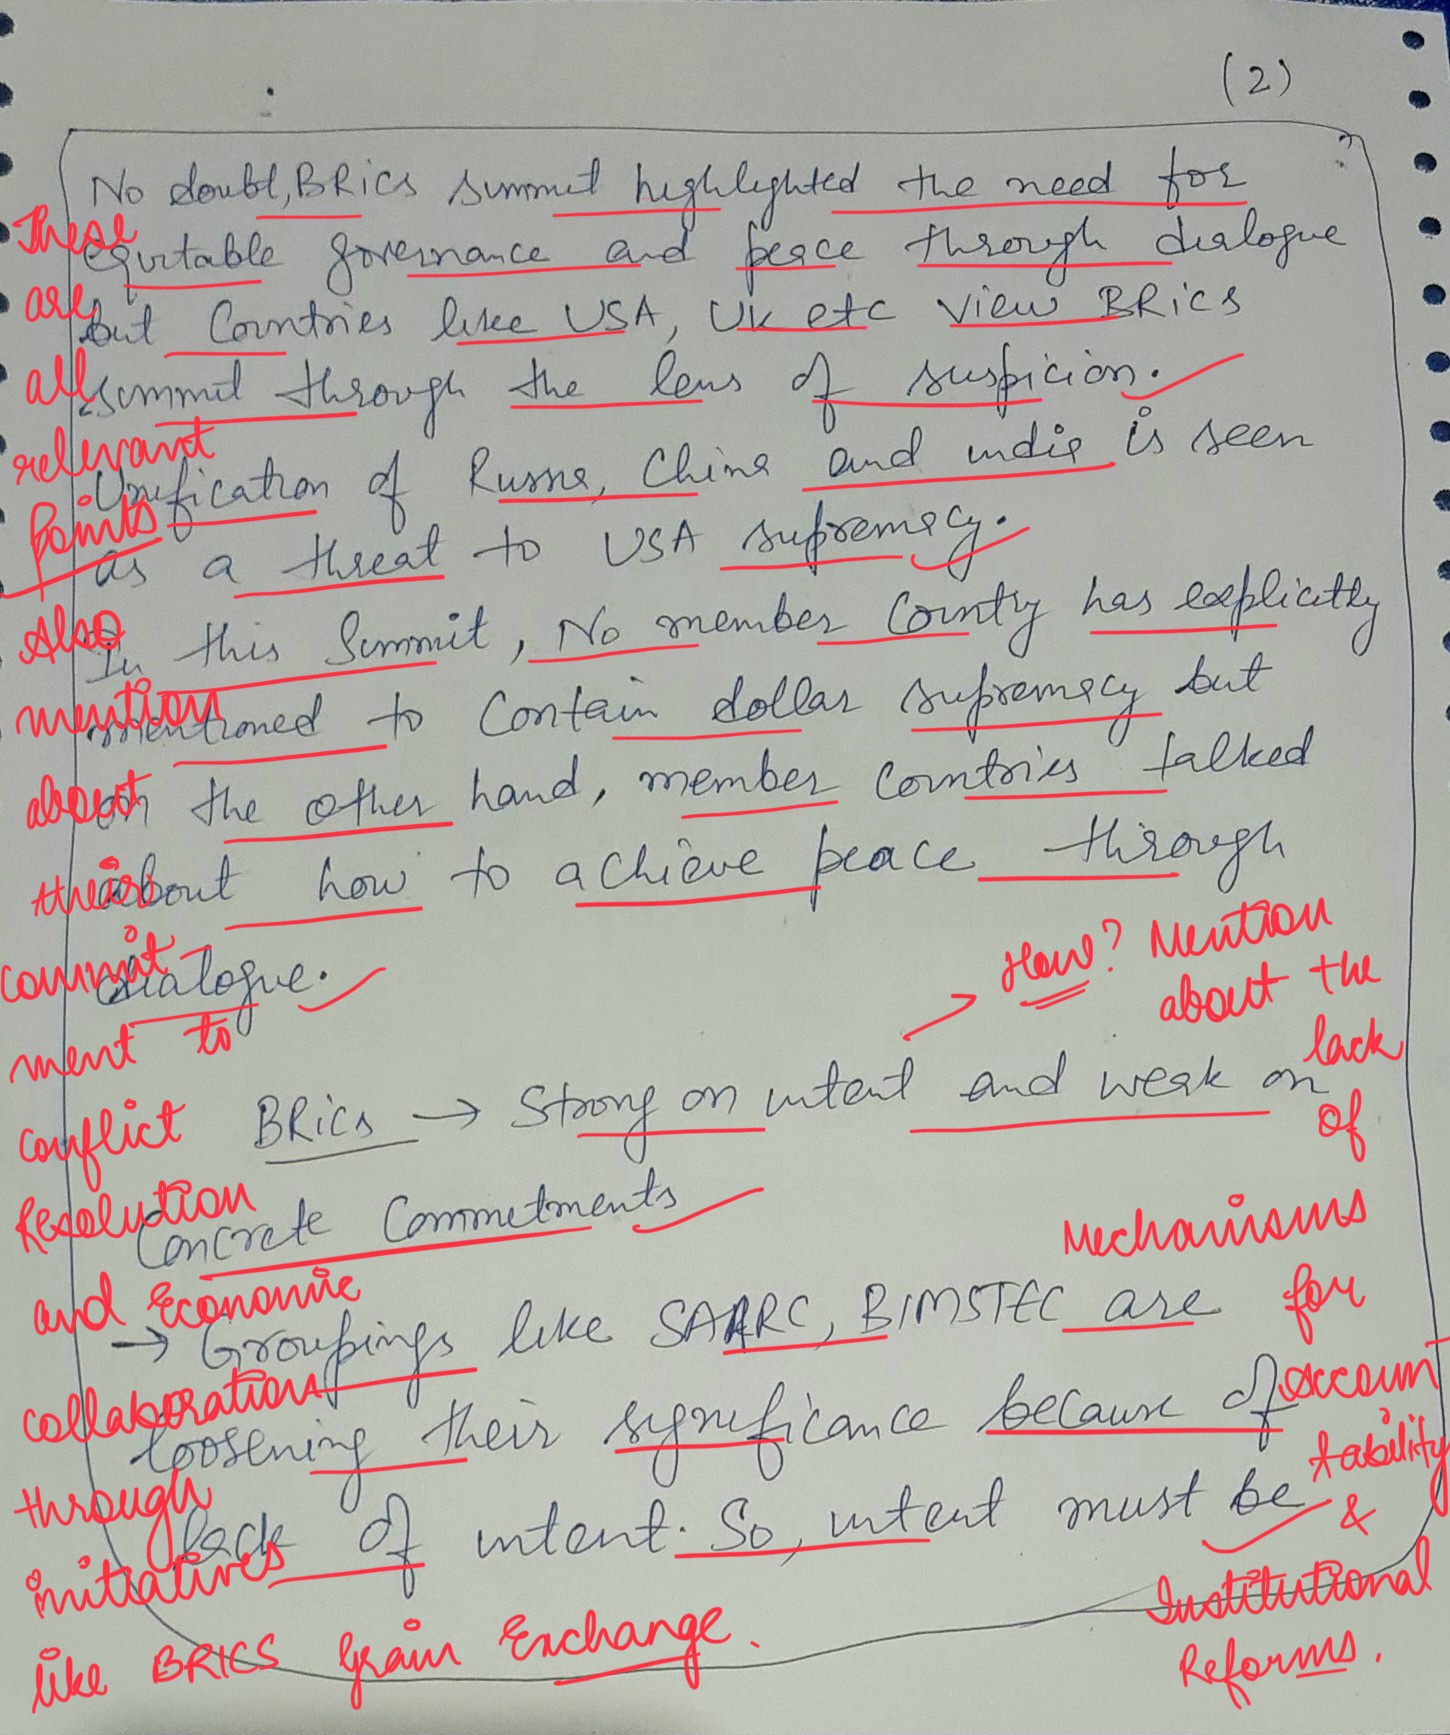 (2)
No doubt, BRics summit highlighted the need for
equitable governance and peace through dialogue
but Countries like USA, UK etc view BRics
summit through the lens of suspicion.
Unification of Russia, China and india is seen
as a threat to USA supremacy.
In this Summit, No member County has explicitly
mentioned to contain dollar supremacy but
on the other hand, member countries talked
about how to achieve peace through
dialogue.
BRics → Strong on intent and weak on
Concrete Commetments
→ Groupings like SAARC, BIMSTEC are
loosening their significance because of
lack of intent. So, intent must be
These
are
all
relevant
Points
Also
mention
about
their
commit-
ment to
conflict
Resolution
and Economic
collaboration
through
initiatives
like BRICS Grain Exchange.
→ How? Mention
about the
lack
of
Mechanisms
for
accoun
tability
&
Institutional
Reforms.